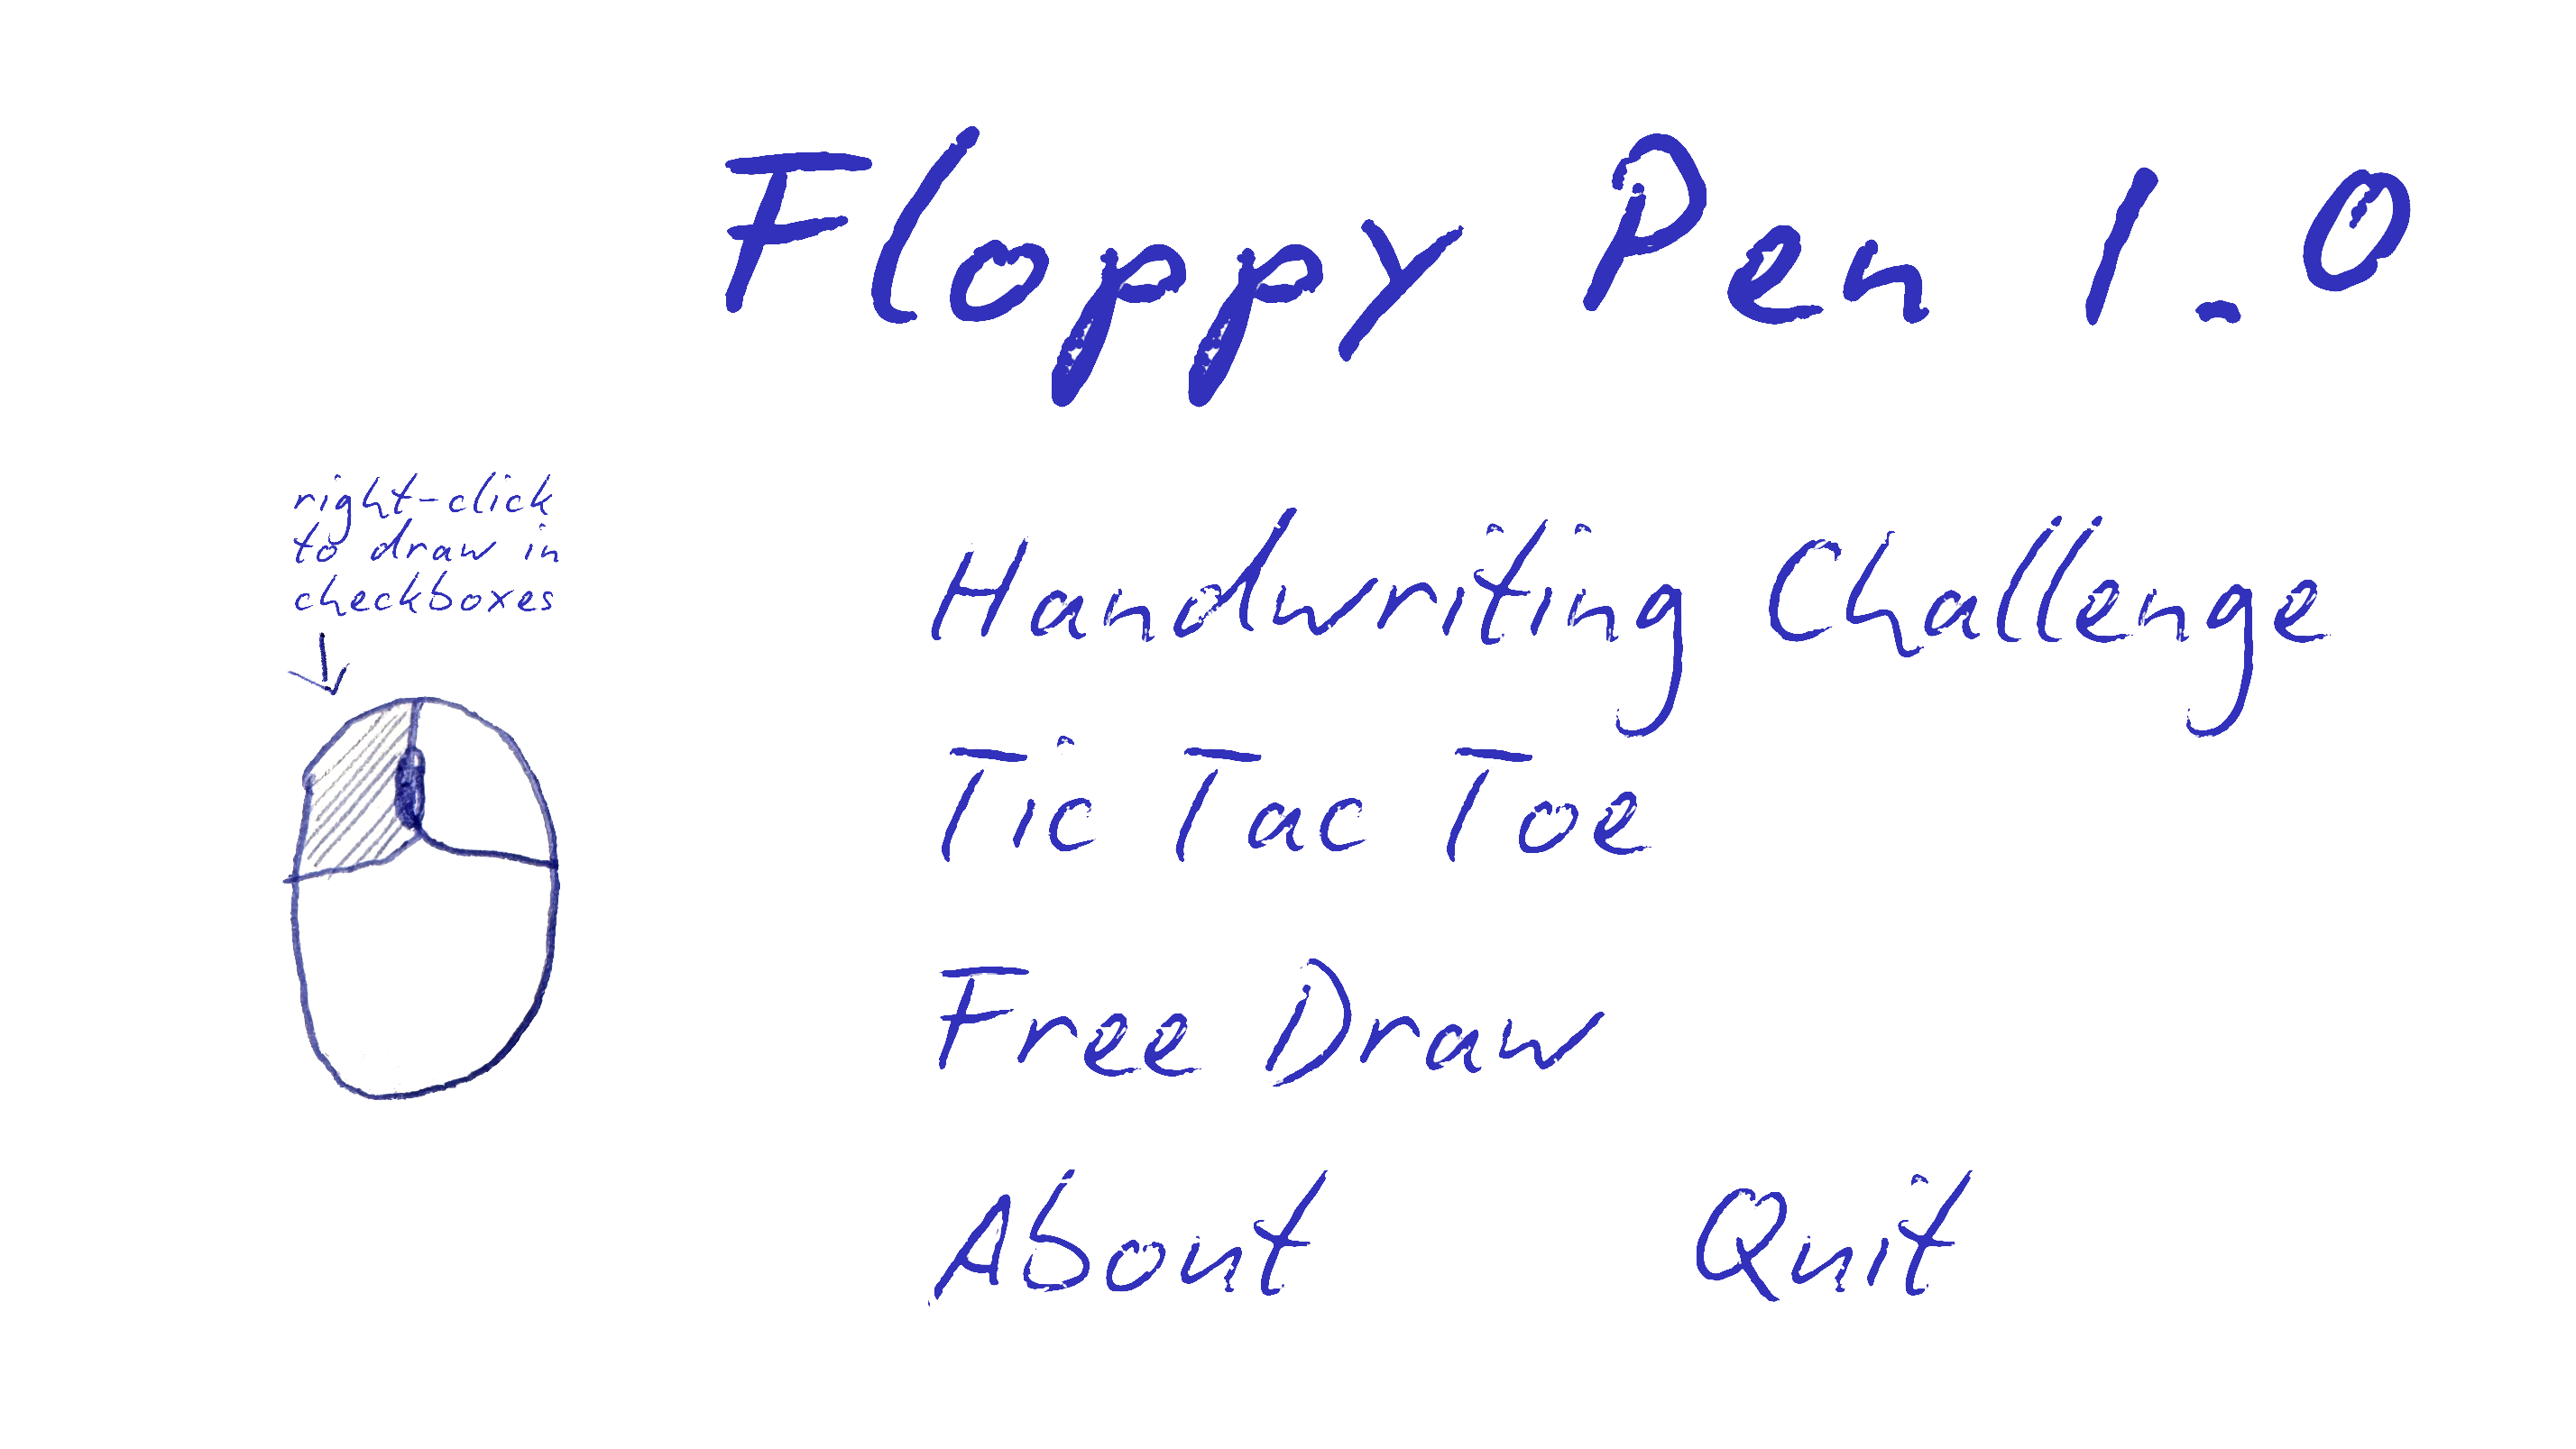 Floppy Pen 1.0
right-click
to draw in
checkboxes
Handwriting Challenge
Tic Tac Toe
Free Draw
About
Quit